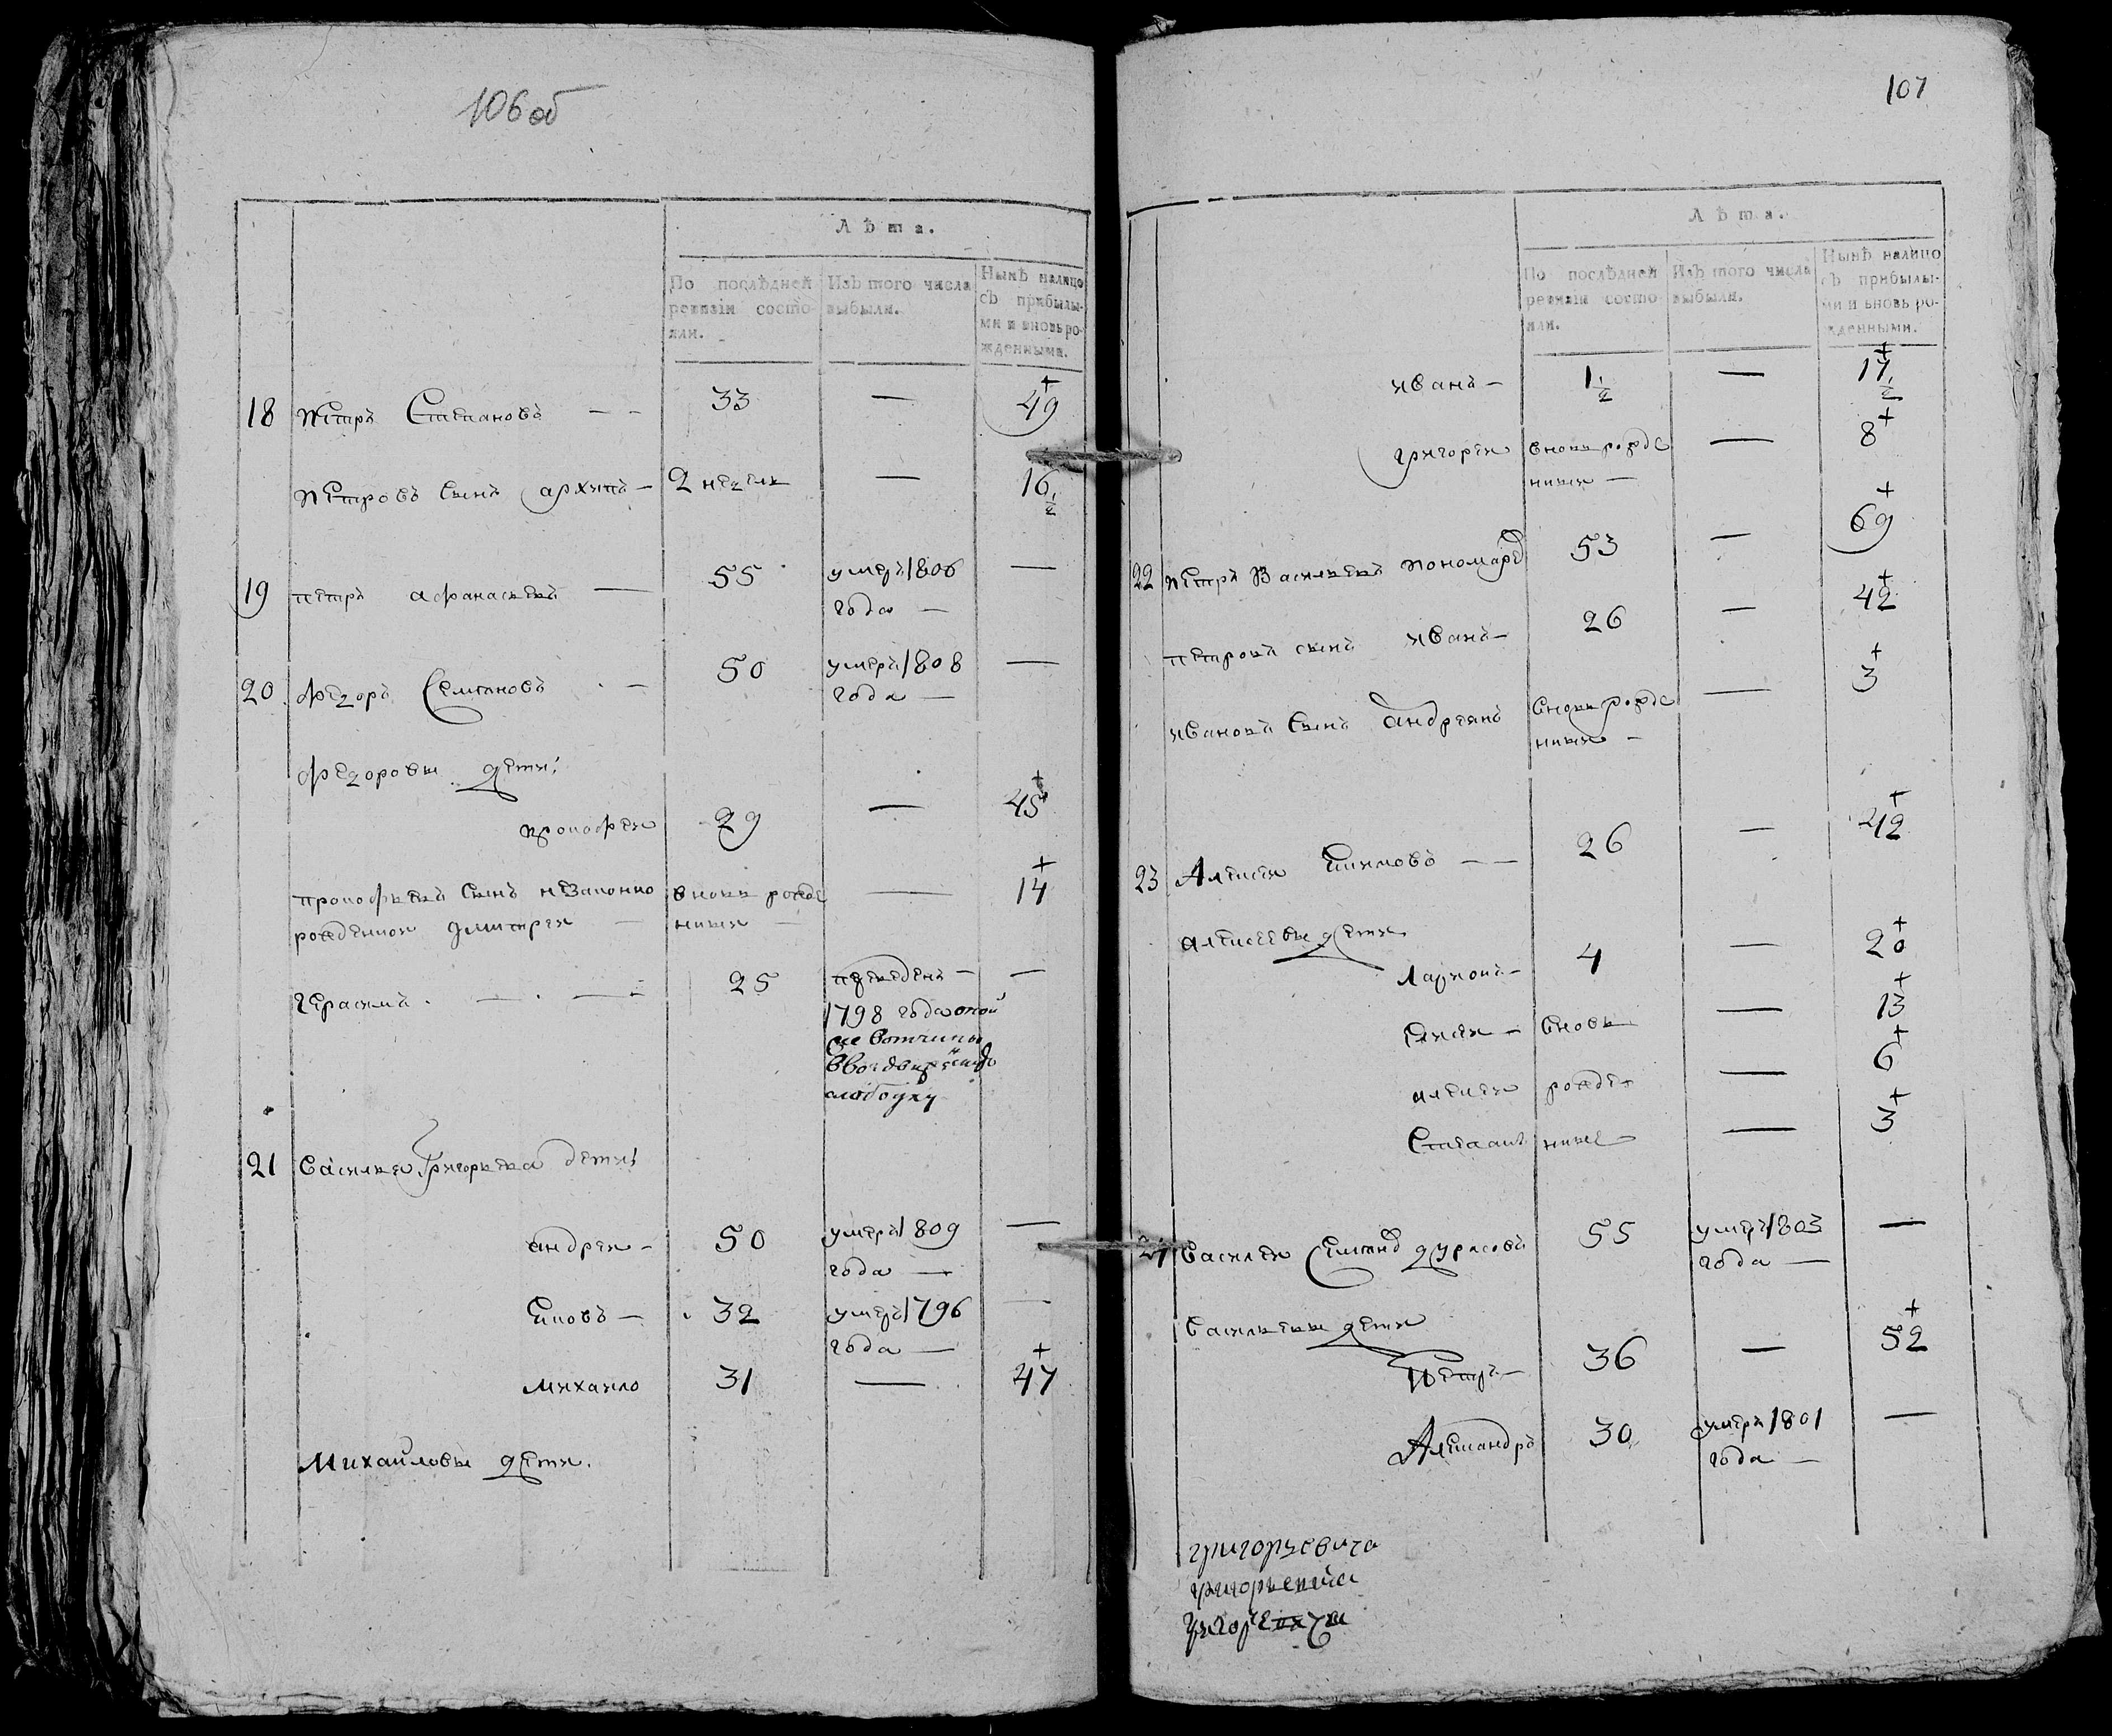 106 об
Лѣта.
По послѣдней ревизіи состояли.
Изъ того числа выбыли.
Нынѣ налицо съ прибылыми и вновь рожденными.
18 Петръ Степановъ — — 33 — 49 +
Петровъ сынъ архипъ — 2 недели — 16 1/2
19 петръ афанасьевъ — 55 умеръ 1806 —
года —
20 федоръ Семеновъ — 50 умеръ 1808 —
года —
федоровы дети:
прокофеи 29 — 45 +
прокофьевъ сынъ незаконно вновь рожде — 14 +
рожденнои дмитреи — нныи —
герасимъ — — 25 переведенъ — —
1798 года оной
же вотчины
слободку
21 василья григорьева дети:
андреи — 50 умеръ 1809 —
года —
32 умеръ 1796 —
года —
михаило 31 — 47 +
Михайловы дети.
107
Лѣта.
По послѣдней ревизіи состояли.
Изъ того числа выбыли.
Нынѣ налицо съ прибылыми и вновь рожденными.
иванъ — 1 1/2 — 17 1/2 +
григореи вновь рожде — 8 +
нныи —
22 петръ Васильевъ пономарев 53 — 69 +
петровъ сынъ иванъ — 26 — 42 +
ивановъ сынъ андреянъ вновь рожде — 3 +
нныи —
23 Алексеи — — 26 — 42 +
алексеевы дети
Ларионъ — 4 — 20 +
вновь — 13 +
алексеи рожде — 6 +
Степанъ нные — 3 +
24 василеи Семенов дурасовъ 55 умеръ 1803 —
года —
васильевы дети
Петръ — 36 — 52 +
Александръ 30 умеръ 1801 —
года —
григорьевича